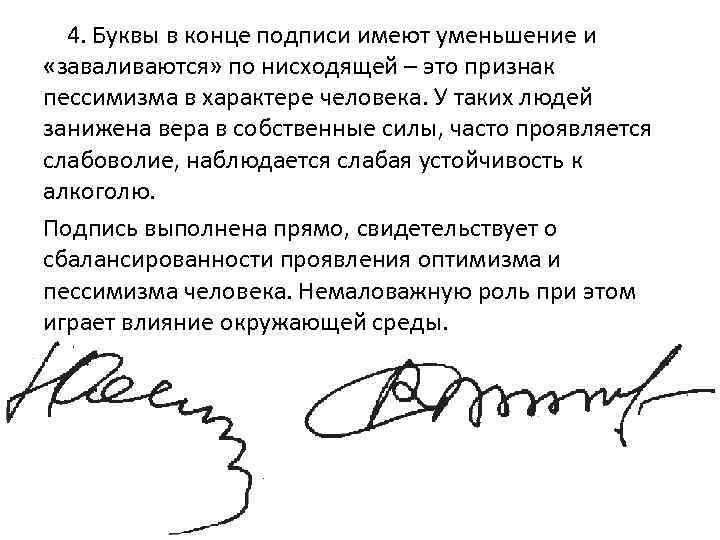 4. Буквы в конце подписи имеют уменьшение и
«заваливаются» по нисходящей – это признак
пессимизма в характере человека. У таких людей
занижена вера в собственные силы, часто проявляется
слабоволие, наблюдается слабая устойчивость к
алкоголю.
Подпись выполнена прямо, свидетельствует о
сбалансированности проявления оптимизма и
пессимизма человека. Немаловажную роль при этом
играет влияние окружающей среды.